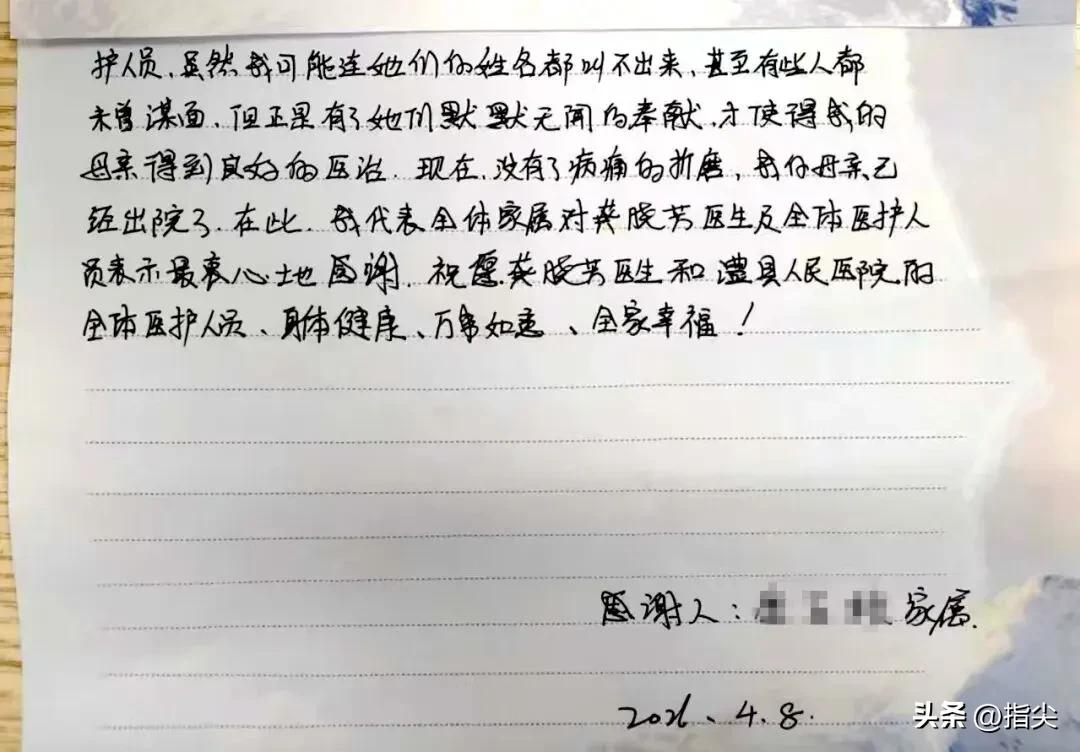 护人员、虽然我可能连她们的姓名都叫不出来、甚至有些人都
未曾谋面、但正是有了她们默默无闻的奉献、才使得我的
母亲得到良好的医治. 现在、没有了病痛的折磨, 我的母亲已
经出院了. 在此、我代表全体家属对龚晓芳医生及全体医护人
员表示最衷心地感谢. 祝愿龚晓芳医生和澧县人民医院的
全体医护人员、身体健康、万事如意、全家幸福!
感谢人: 家属.
2026、4.8.
头条 @指尖